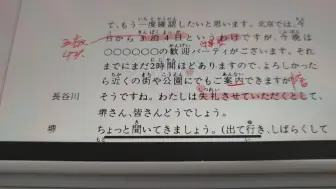 て、もう一度確認したいと思います。北京では、今
日から3泊4日というわけですが、今晩は
〇〇〇〇〇〇の歓迎パーティがございます。それ
までにまだ2時間ほどありますので、よろしかった
ら近くの街や公園にでもご案内できますが
長谷川 そうですね。わたしは失礼させていただくとして、
堺さん、皆さんどうでしょう。
堺 ちょっと聞いてきましょう。(出て行き、しばらくして